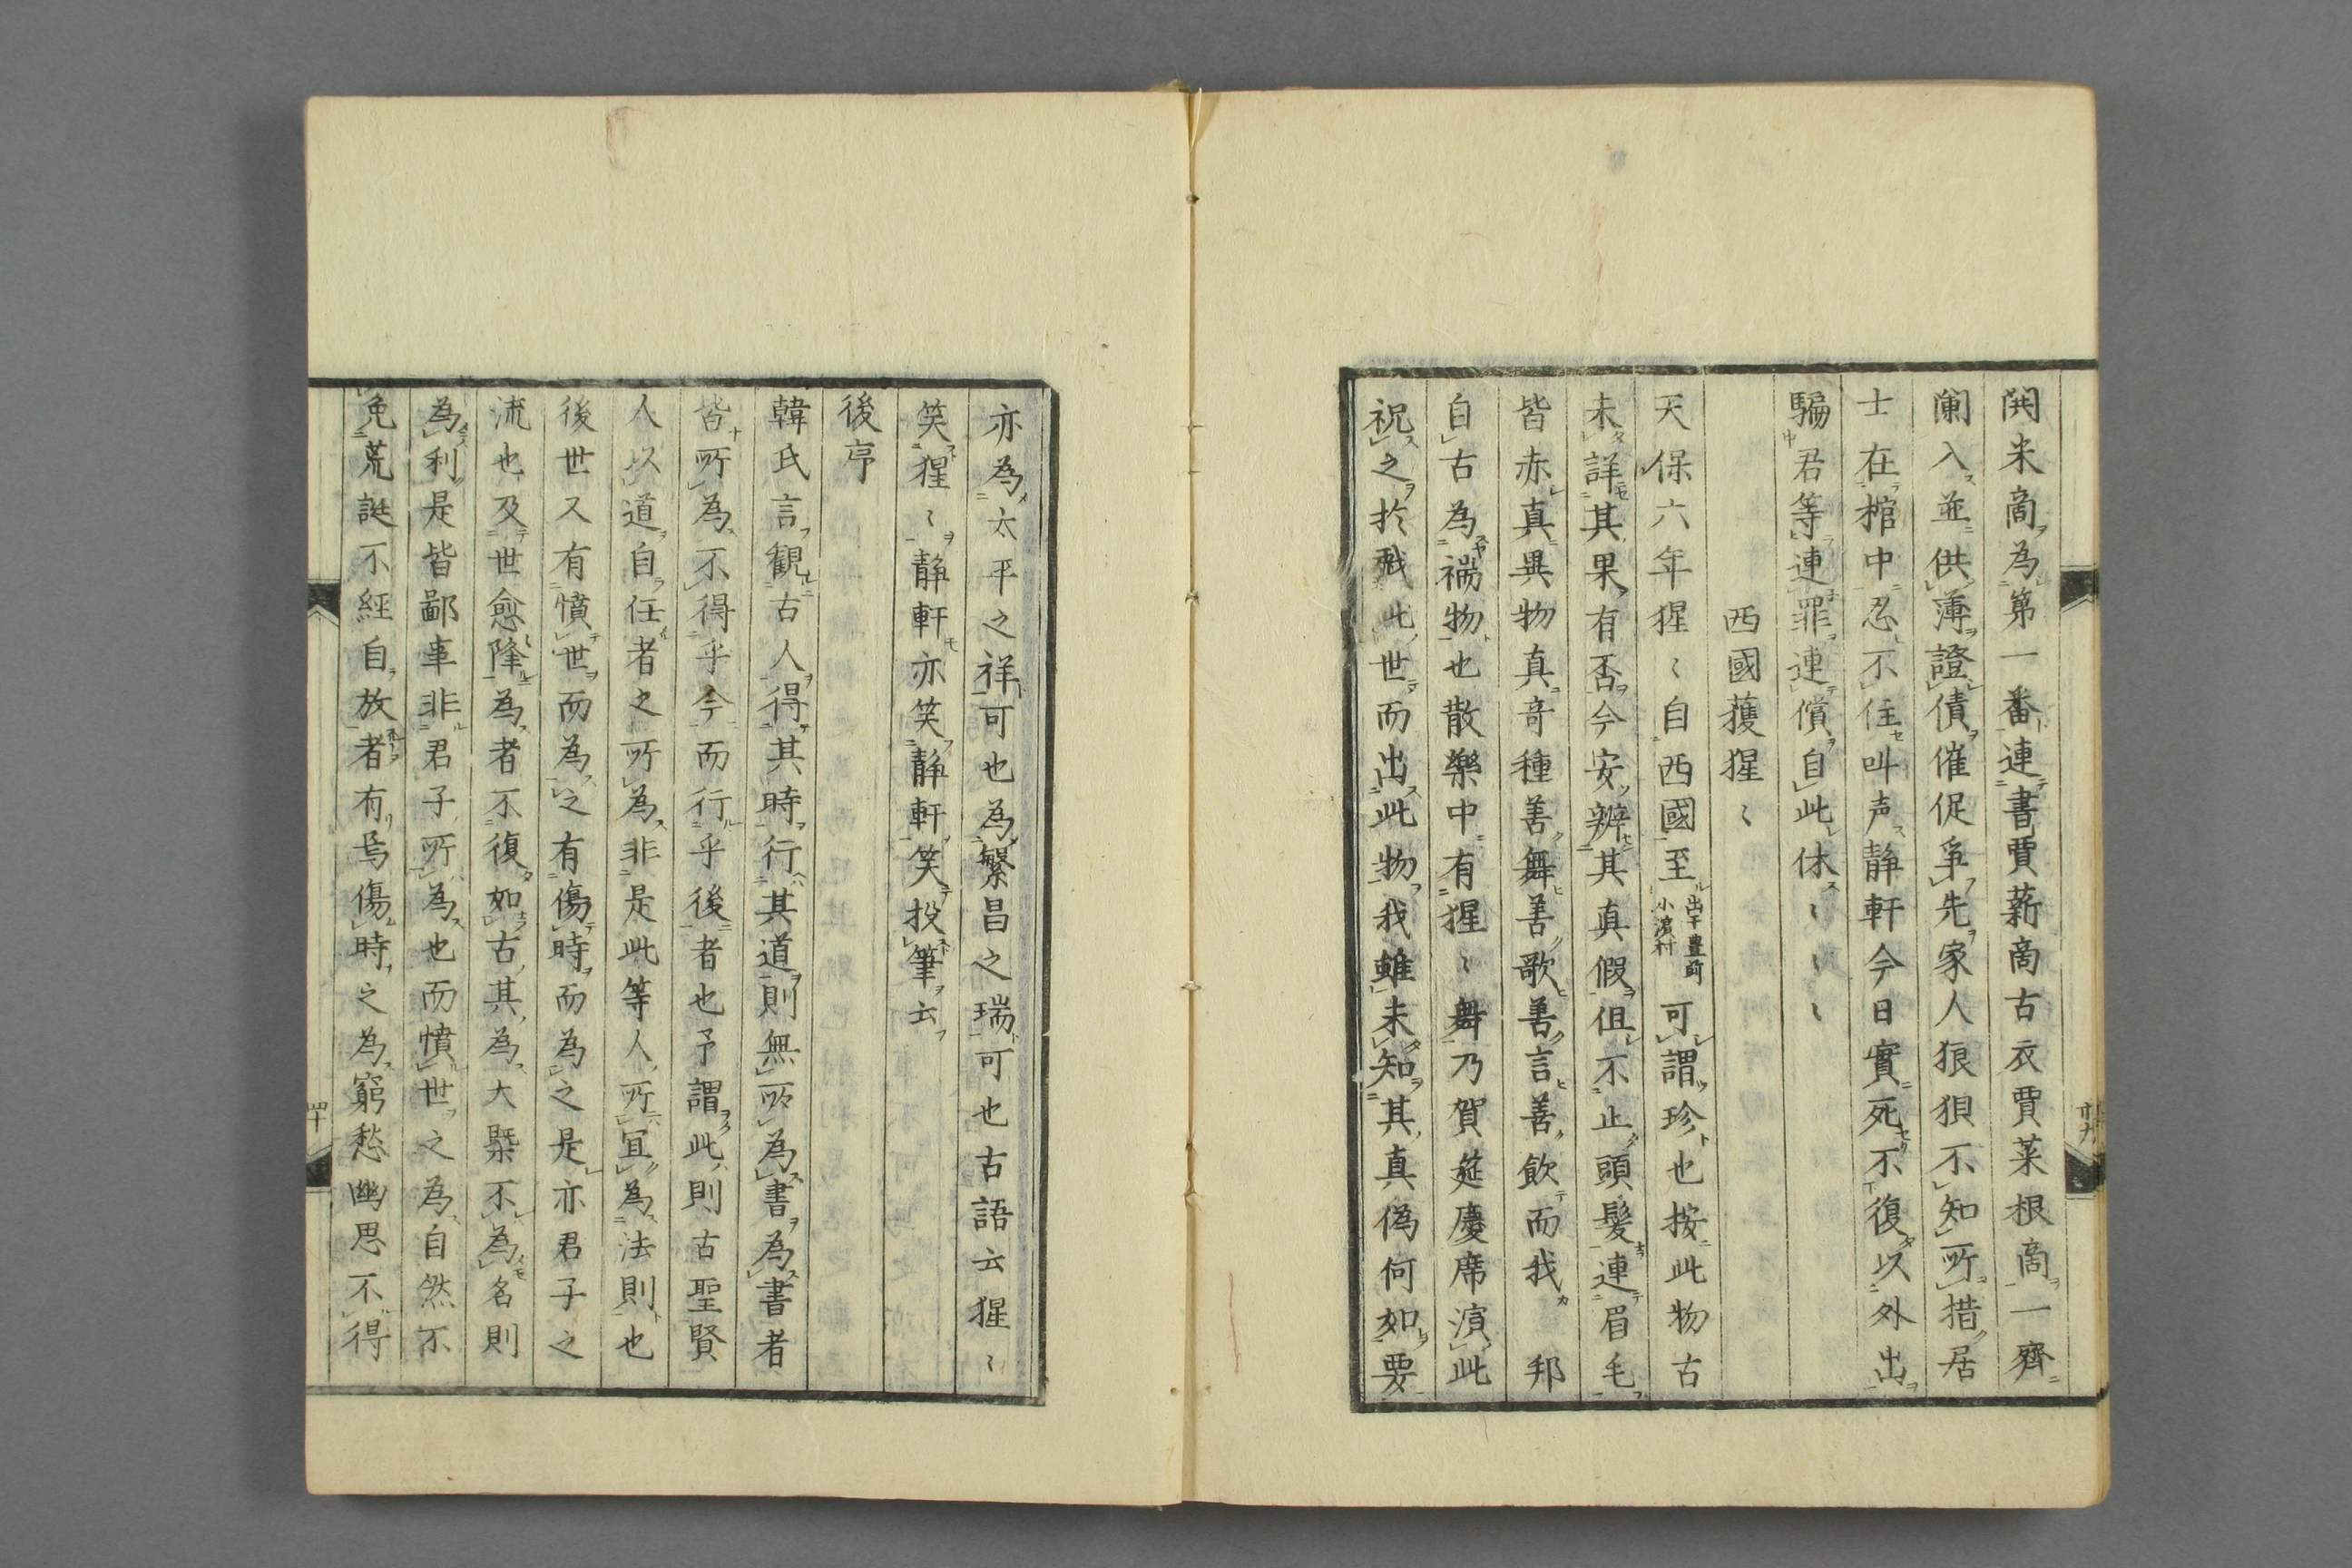 開米商為第一番連書賈薪商古衣賈菜根商一齊
闌入並供薄證債催促爭先家人狼狽不知所措居
士在棺中忍不住叫声静軒今日實死不復以外出
騙君等連罪連償自此休〻〻〻
西國獲猩〻
天保六年猩〻自西國至出于豊前小濱村可謂珍也按此物古
未詳其果有否今安辨其真假但不止頭髮連眉毛
皆赤真異物真奇種善舞善歌善言善飲而我 邦
自古為瑞物也散樂中有猩〻舞乃賀筵慶席演此
祝之於戲此世而出此物我雖未知其真偽何如要
廿九
亦為太平之祥可也為繁昌之瑞可也古語云猩〻
笑猩〻静軒亦笑静軒笑投筆云
後序
韓氏言觀古人得其時行其道則無所為書為書者
皆所為不得乎今而行乎後者也予謂此則古聖賢
人以道自任者之所為非是此等人所宜為法則也
後世又有憤世而為之有傷時而為之是亦君子之
流也及世愈降為者不復如古其為大槩不為名則
為利是皆鄙事非君子所為也而憤世之為自然不
免荒誕不經自放者有焉傷時之為窮愁幽思不得
四十